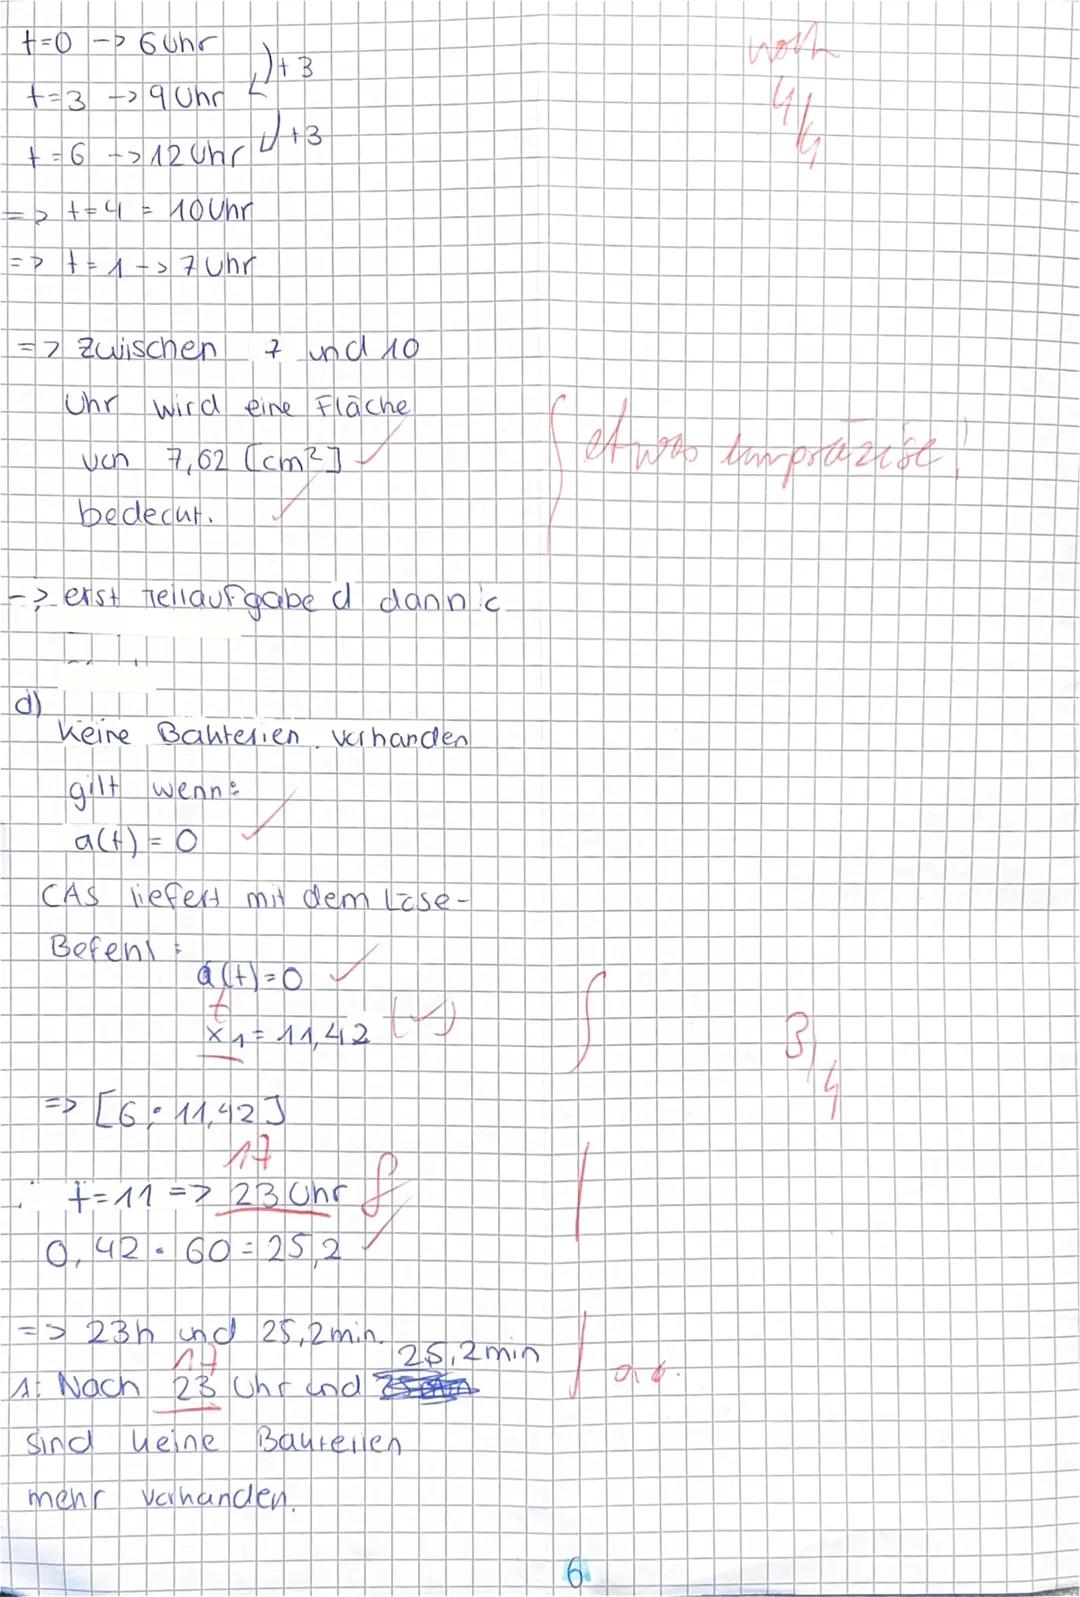 t=0 -> 6 Uhr
+3
noch
4/4
t=3 -> 9 Uhr
+3
t=6 -> 12 Uhr
=> t=4 = 10 Uhr
=> t=1 -> 7 Uhr
=> zwischen 7 und 10
Uhr wird eine Fläche
von 7,62 [cm²] ✓
etwas unpräzise!
bedeckt. ✓
-> erst Teilaufgabe d dann c
d)
Keine Bakterien vorhanden
gilt wenn:
a(t) = 0 ✓
CAS liefert mit dem Löse-
Befehl:
a(t)=0 ✓
t
x₁ = 11,42 (✓)
3/4
=> [6; 11,42]
17
t=11 => 23 Uhr f
0,42 · 60 = 25,2 ✓
=> 23h und 25,2min.
17
25,2min
A: Nach 23 Uhr und
sind keine Bakterien
mehr vorhanden.
6